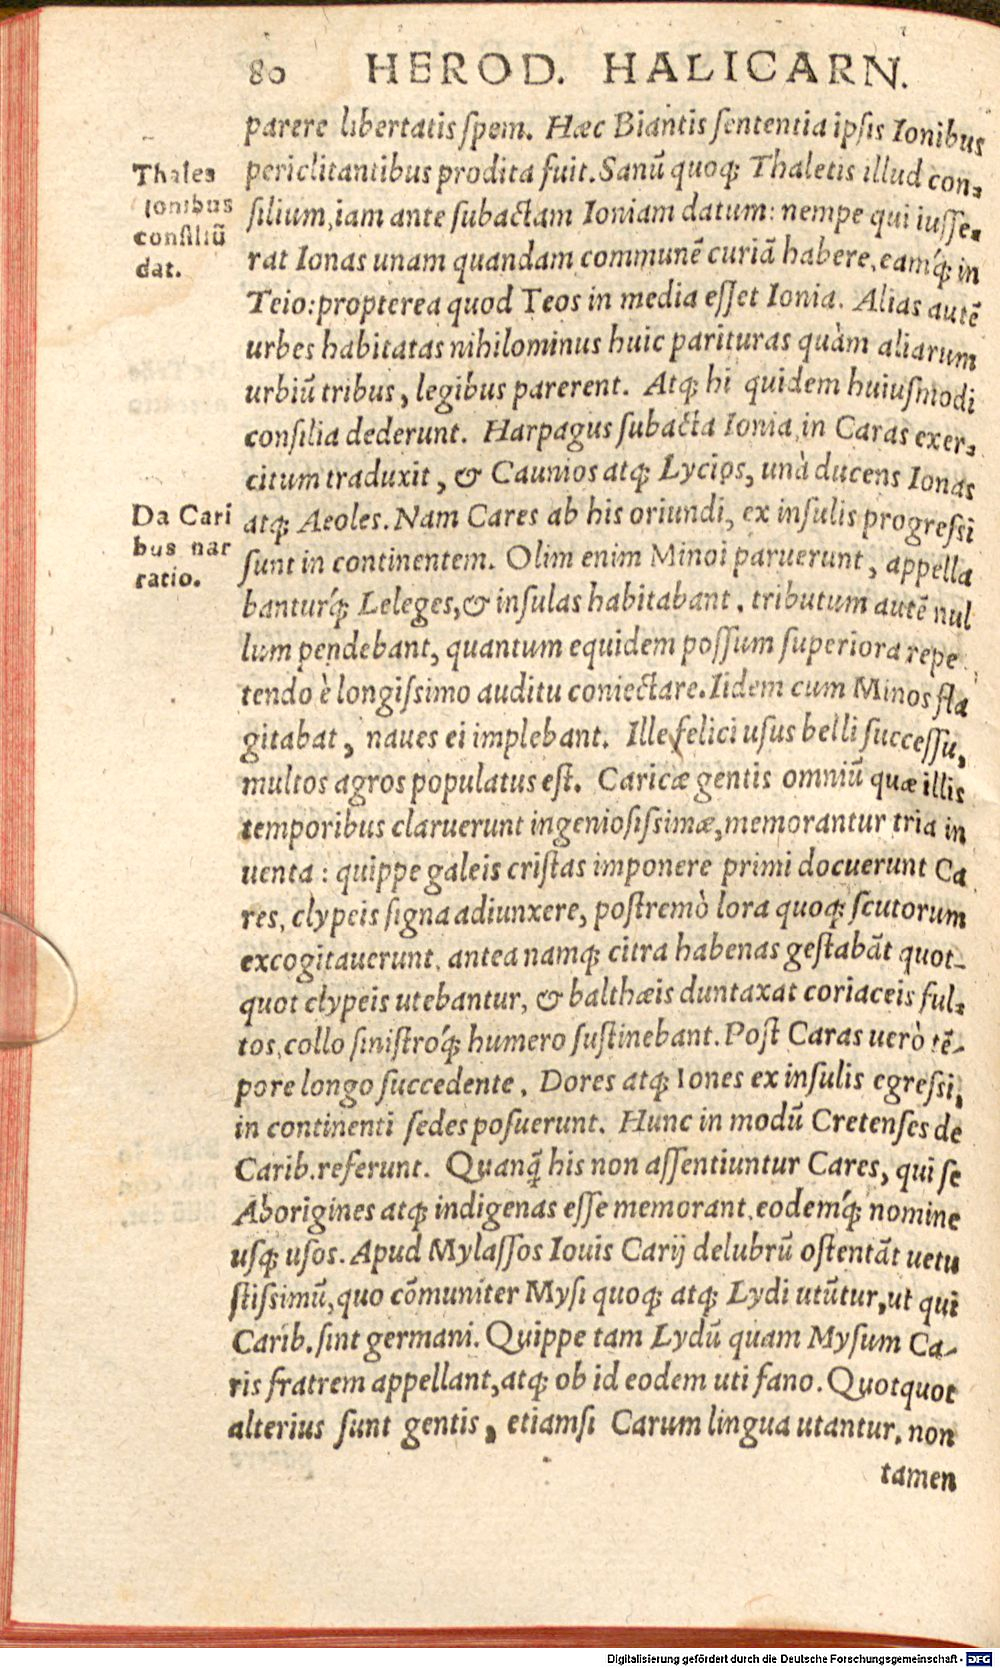 80 HEROD. HALICARN.
parere libertatis spem. Hæc Biantis sententia ipsis Ionibus
periclitantibus prodita fuit. Sanũ quoq; Thaletis illud con-
silium, iam ante subactam Ioniam datum: nempe qui iusse-
rat Ionas unam quandam communẽ curiã habere, eamq́; in
Teio: propterea quod Teos in media esset Ionia. Alias autẽ
urbes habitatas nihilominus huic parituras quàm aliarum
urbiũ tribus, legibus parerent. Atq; hi quidem huiusmodi
consilia dederunt. Harpagus subacta Ionia, in Caras exer-
citum traduxit, & Caunios atq; Lycios, unà ducens Ionas
atq; Aeoles. Nam Cares ab his oriundi, ex insulis progressi
sunt in continentem. Olim enim Minoi paruerunt, appella
banturq́; Leleges, & insulas habitabant. tributum autẽ nul
lum pendebant, quantum equidem possum superiora repe
tendo è longissimo auditu coniectare. Iidem cum Minos fla
gitabat, naues ei implebant. Ille felici usus belli successu,
multos agros populatus est. Caricæ gentis omniũ quæ illis
temporibus claruerunt ingeniosissimæ, memorantur tria in
uenta: quippe galeis cristas imponere primi docuerunt Ca
res, clypeis signa adiunxere, postremò lora quoq; scutorum
excogitauerunt. antea namq; citra habenas gestabãt quot-
quot clypeis utebantur, & balthæis duntaxat coriaceis ful-
tos, collo sinistroq́; humero sustinebant. Post Caras uerò tẽ-
pore longo succedente, Dores atq; Iones ex insulis egressi,
in continenti sedes posuerunt. Hunc in modũ Cretenses de
Carib. referunt. Quanq̃ his non assentiuntur Cares, qui se
Aborigines atq; indigenas esse memorant, eodemq́; nomine
usq; usos. Apud Mylassos Iouis Carij delubrũ ostentãt uetu
stissimũ, quo cõmuniter Mysi quoq; atq; Lydi utũtur, ut qui
Carib. sint germani. Quippe tam Lydũ quam Mysum Ca-
ris fratrem appellant, atq; ob id eodem uti fano. Quotquot
alterius sunt gentis, etiamsi Carum lingua utantur, non
tamen
Thales
Ionibus
consiliũ
dat.
Da Cari
bus nar
ratio.
Digitalisierung gefördert durch die Deutsche Forschungsgemeinschaft - DFG